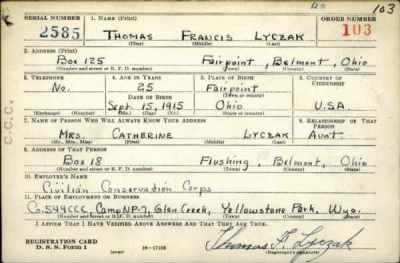 DO 103
SERIAL NUMBER 1. NAME (Print) ORDER NUMBER
2585 THOMAS FRANCIS LYCZAK 103
(First) (Middle) (Last)
2. ADDRESS (Print)
Box 125 Fairpoint, Belmont, Ohio
(Number and street or R. F. D. number) (Town) (County) (State)
3. TELEPHONE 4. AGE IN YEARS 5. PLACE OF BIRTH 6. COUNTRY OF CITIZENSHIP
No. 25 Fairpoint
DATE OF BIRTH (Town or county)
Sept. 15, 1915 Ohio U.S.A.
(Exchange) (Number) (Mo.) (Day) (Yr.) (State or country)
7. NAME OF PERSON WHO WILL ALWAYS KNOW YOUR ADDRESS 8. RELATIONSHIP OF THAT PERSON
MRS. CATHERINE LYCZAK AUNT
(Mr., Mrs., Miss) (First) (Middle) (Last)
9. ADDRESS OF THAT PERSON
Box 18 Flushing, Belmont, Ohio
(Number and street or R. F. D. number) (Town) (County) (State)
10. EMPLOYER'S NAME
Civilian Conservation Corps
11. PLACE OF EMPLOYMENT OR BUSINESS
Co. 544 CCC, Camp NP-7, Glen Creek, Yellowstone Park, Wyo.
(Number and street or R. F. D. number) (Town) (County) (State)
I AFFIRM THAT I HAVE VERIFIED ABOVE ANSWERS AND THAT THEY ARE TRUE.
REGISTRATION CARD
D. S. S. Form 1 (over) 16-17105 Thomas F. Lyczak
(Registrant's signature)
C.C.C.